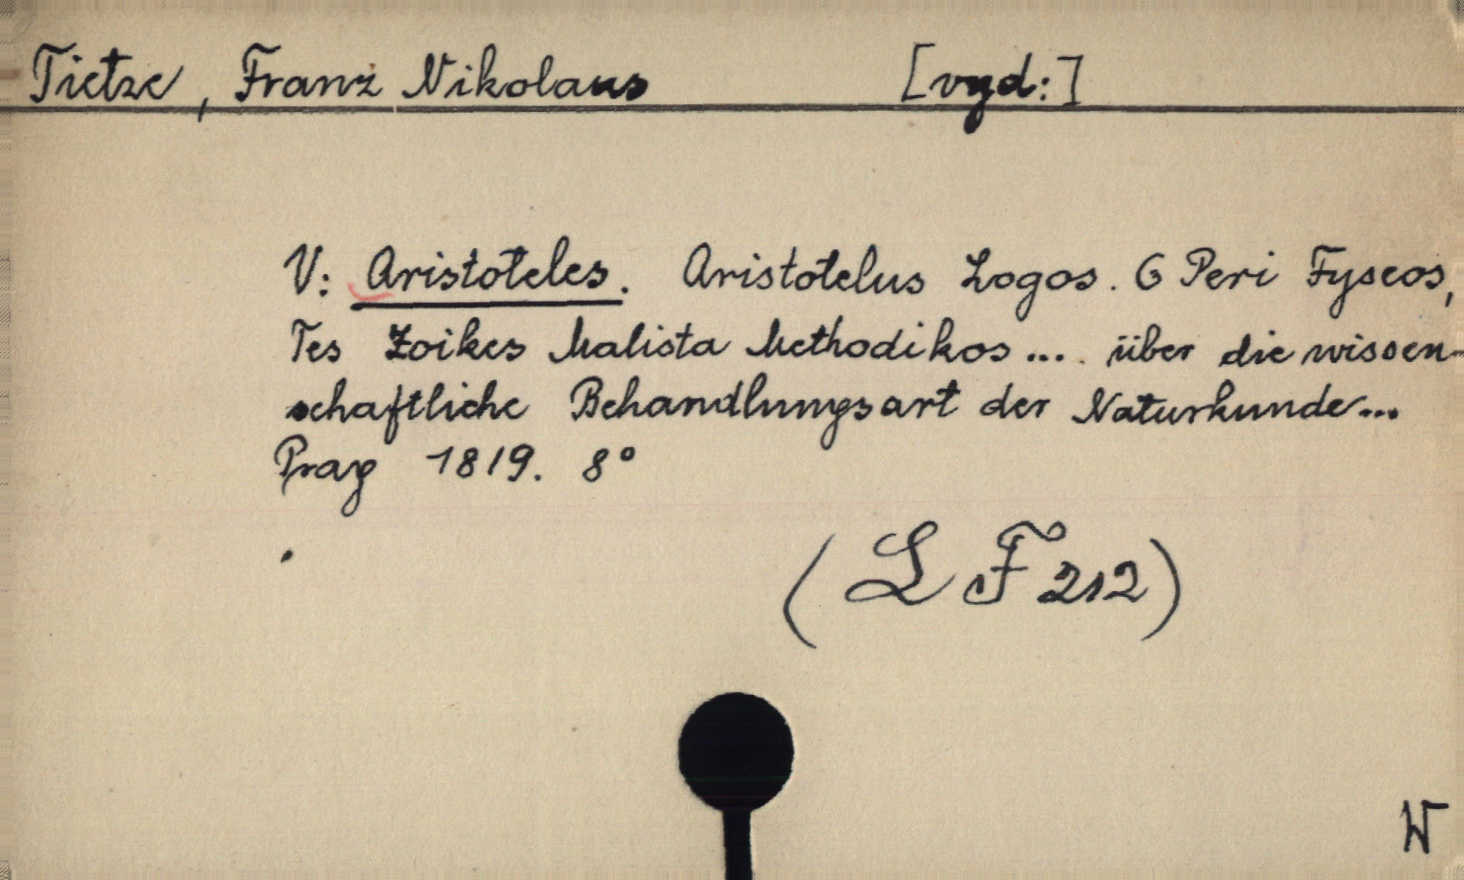 Tietze, Franz Nikolaus [vyd:]
V: Aristoteles. Aristotelus Logos. O Peri Fyseos,
Tes Zoikes Malista Methodikos.... über die wissen-
schaftliche Behandlungsart der Naturkunde...
Prag 1819. 8°
(L F 212)
W